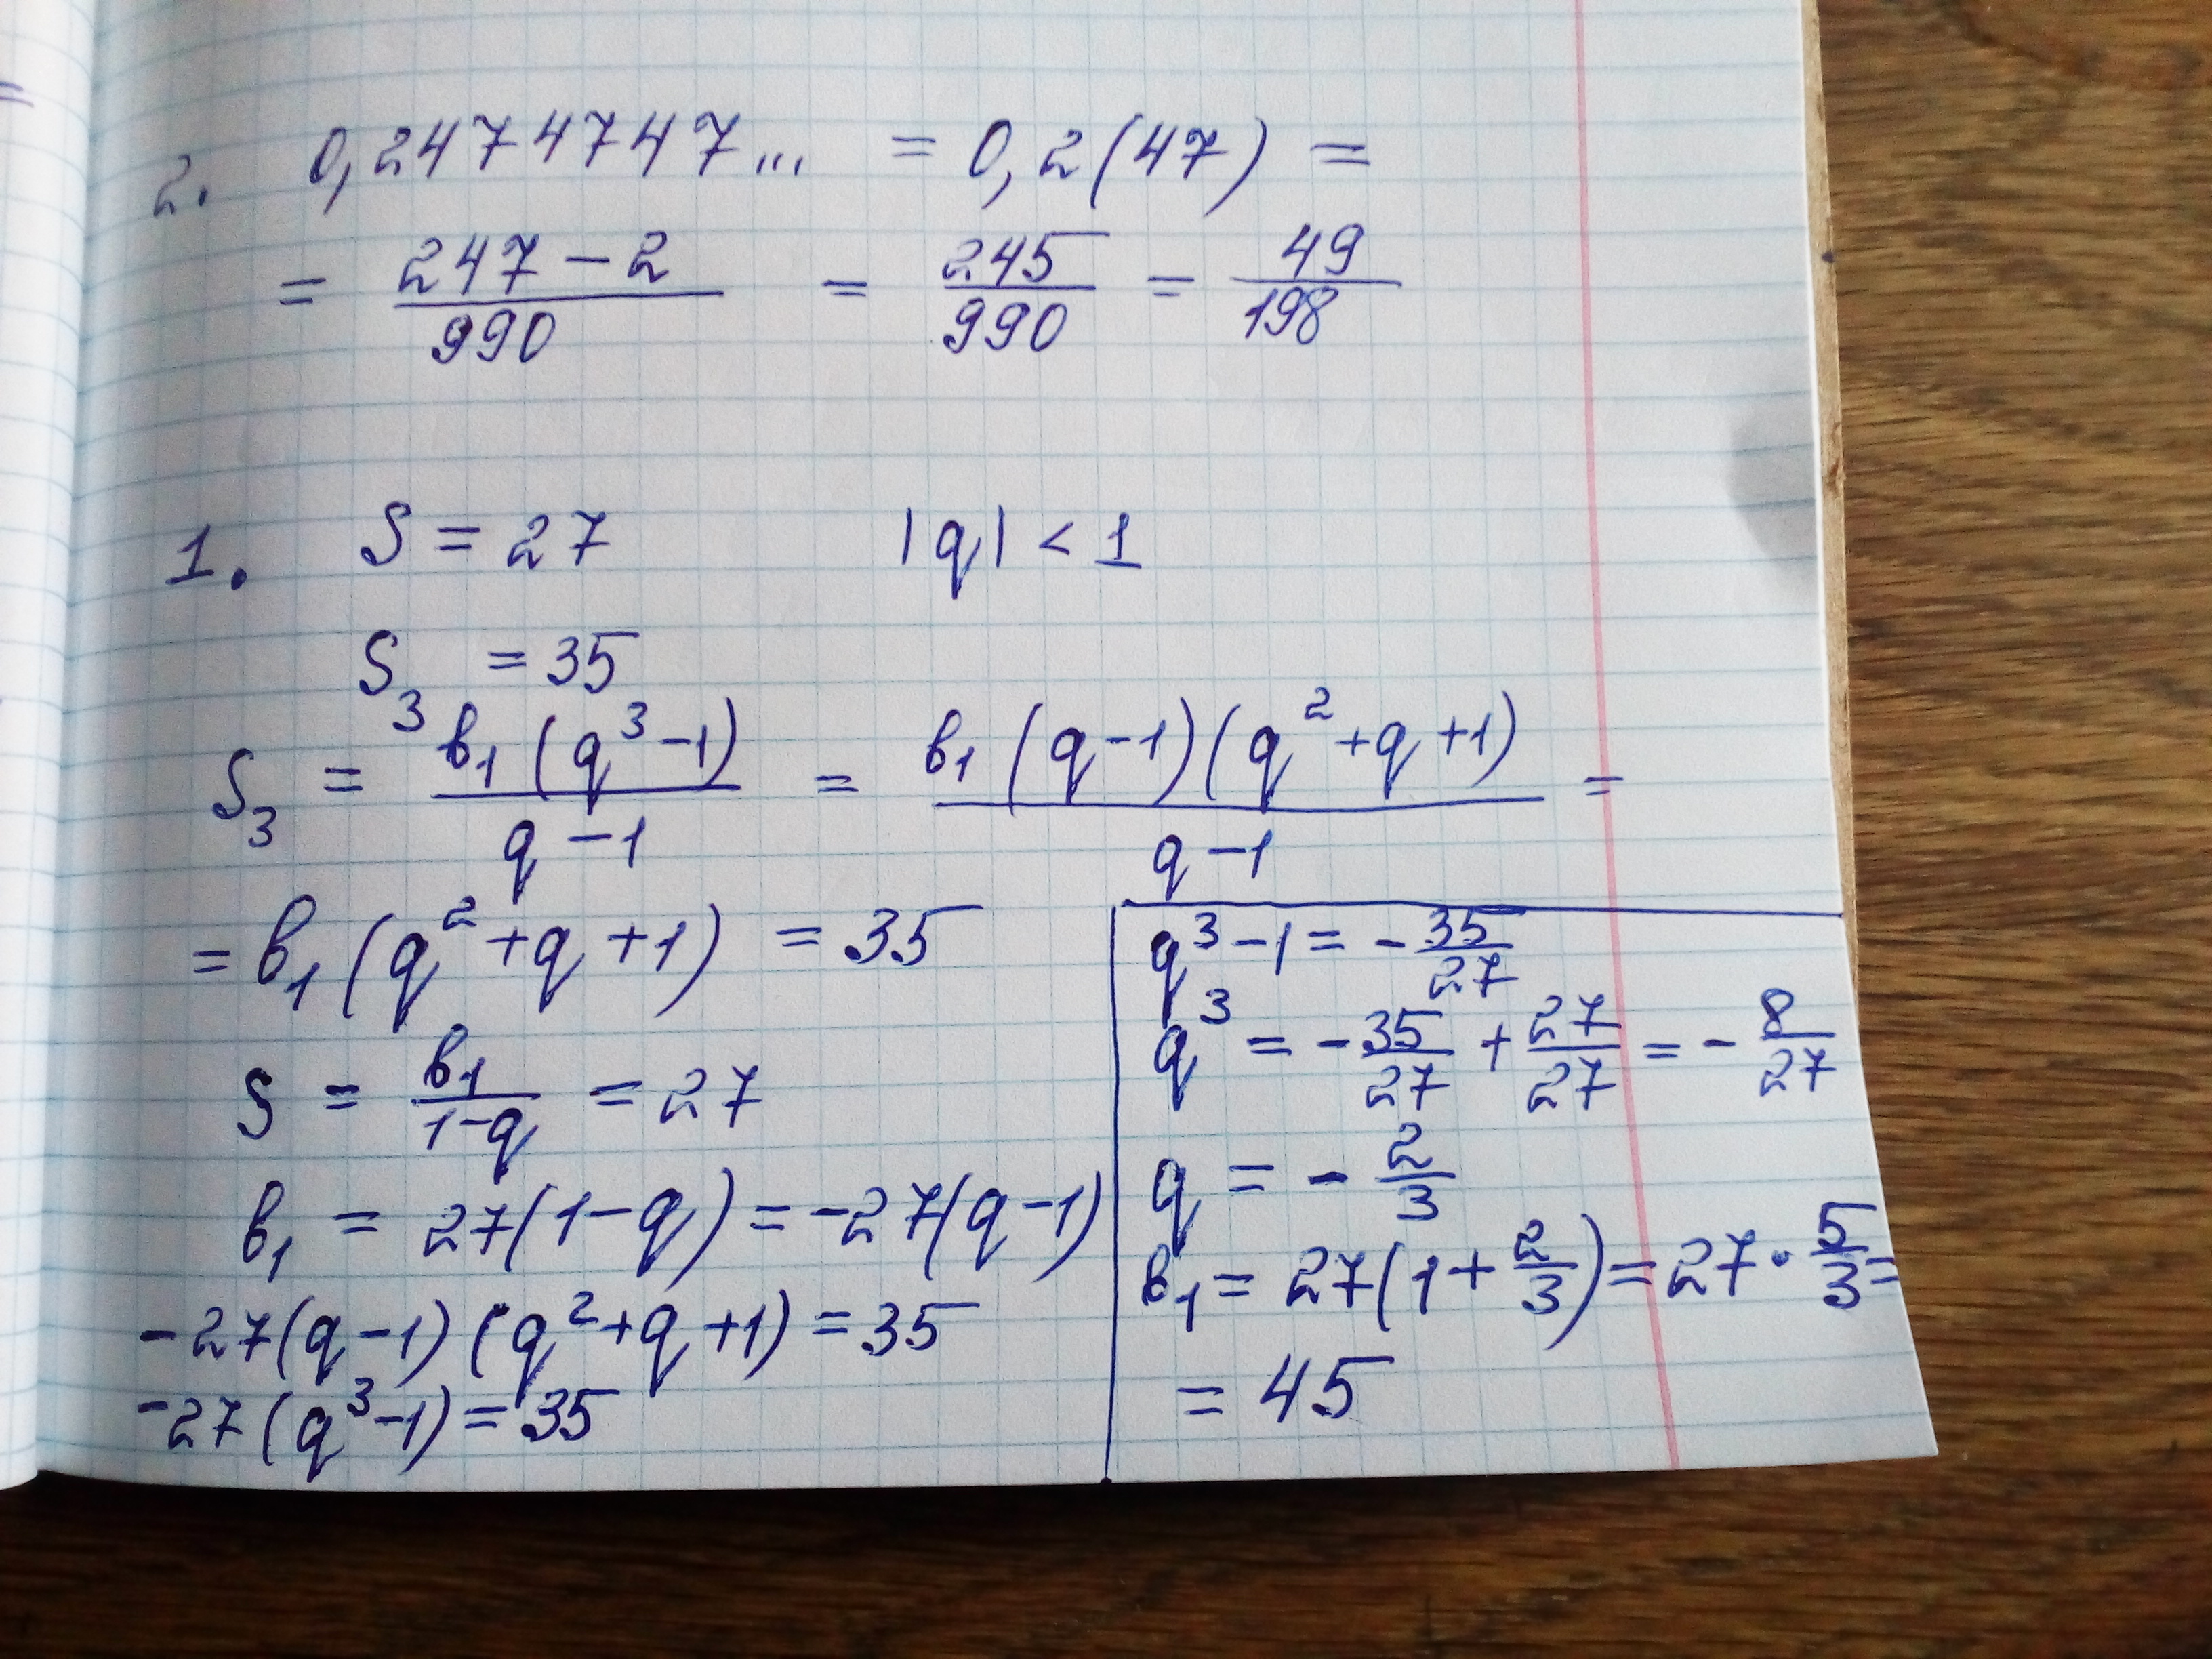 2. 0,2474747... = 0,2(47) =
= (247 - 2)/990 = 245/990 = 49/198
1. S = 27 |q| < 1
S₃ = 35
S₃ = в₁(q³-1)/(q-1) = в₁(q-1)(q²+q+1)/(q-1) =
= в₁(q²+q+1) = 35
S = в₁/(1-q) = 27
в₁ = 27(1-q) = -27(q-1)
-27(q-1)(q²+q+1) = 35
-27(q³-1) = 35
q³-1 = -35/27
q³ = -35/27 + 27/27 = -8/27
q = -2/3
в₁ = 27(1+2/3) = 27·5/3 =
= 45